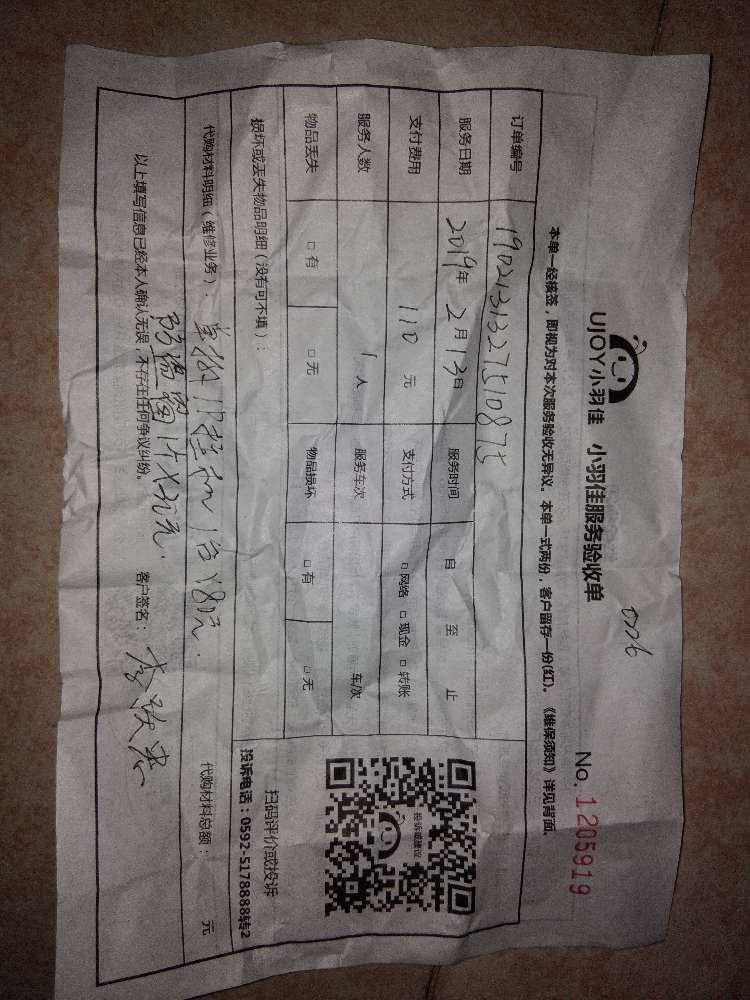 0026
UJOY小羽佳 小羽佳服务验收单
No. 1205919
本单一经核签，即视为对本次服务验收无异议。本单一式两份，客户留存一份(红)。《维保须知》详见背面。
订单编号 1902131327510875
服务日期 2019年 2月13日 服务时间 自 至 止
支付费用 110 元 支付方式 □网络 □现金 □转账
服务人数 1 人 服务车次 车/次
物品丢失 □有 □无 物品损坏 □有 □无
投诉或建议
扫码评价或投诉
投诉电话：0592-5178888转2
损坏或丢失物品明细（没有可不填）：
代购材料明细（维修业务）： 挂机1台×80元.
1个×30元.
代购材料总额： 元
以上填写信息已经本人确认无误，不存在任何争议纠纷。 客户签名： 李